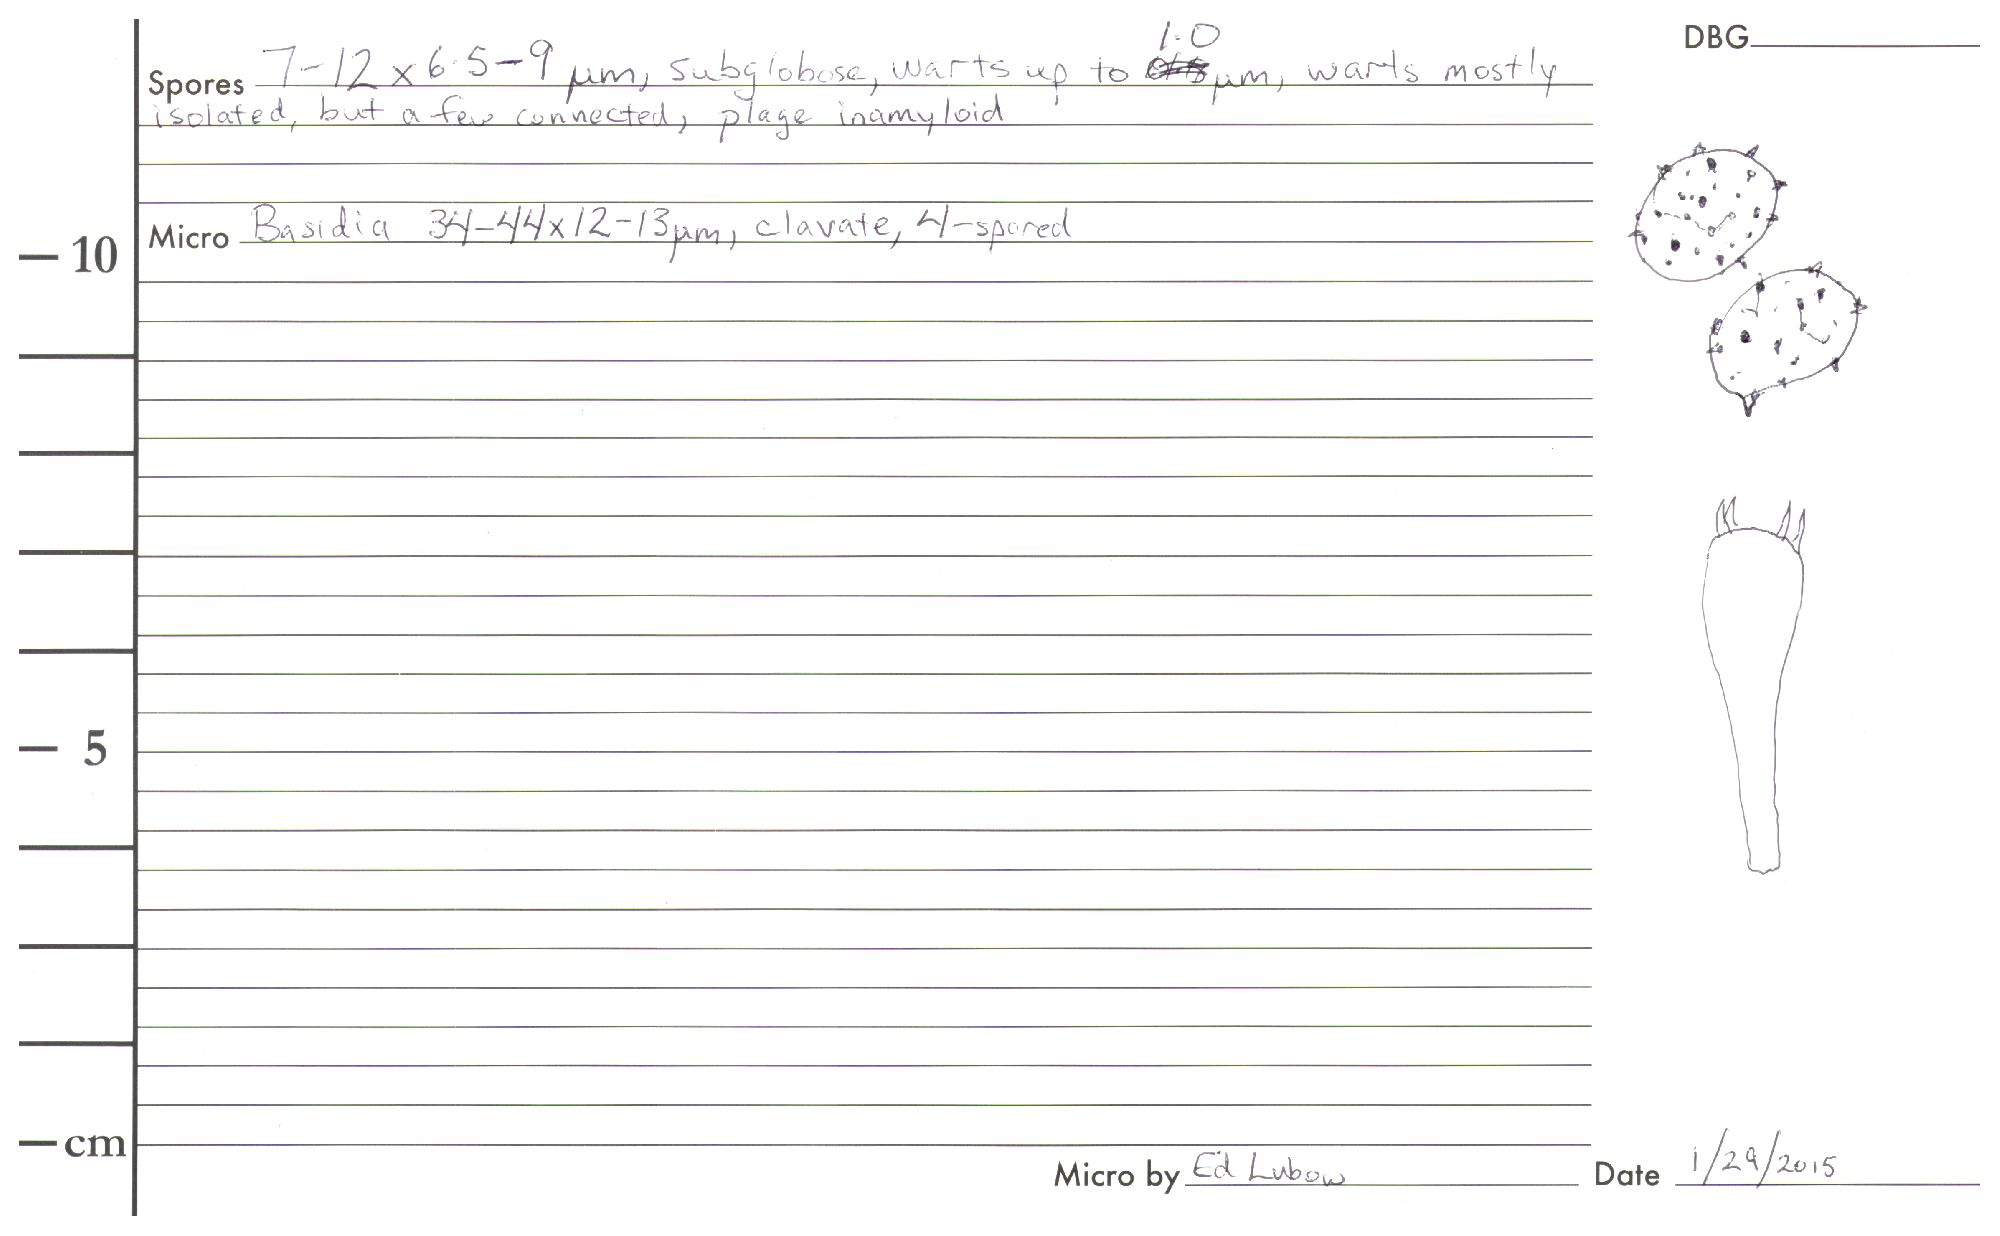 DBG
Spores 7-12 x 6.5-9 µm, subglobose, warts up to 1.0 µm, warts mostly
isolated, but a few connected, plage inamyloid
Micro Basidia 34-44x12-13µm, clavate, 4-spored
10
5
cm
Micro by Ed Lubow Date 1/29/2015